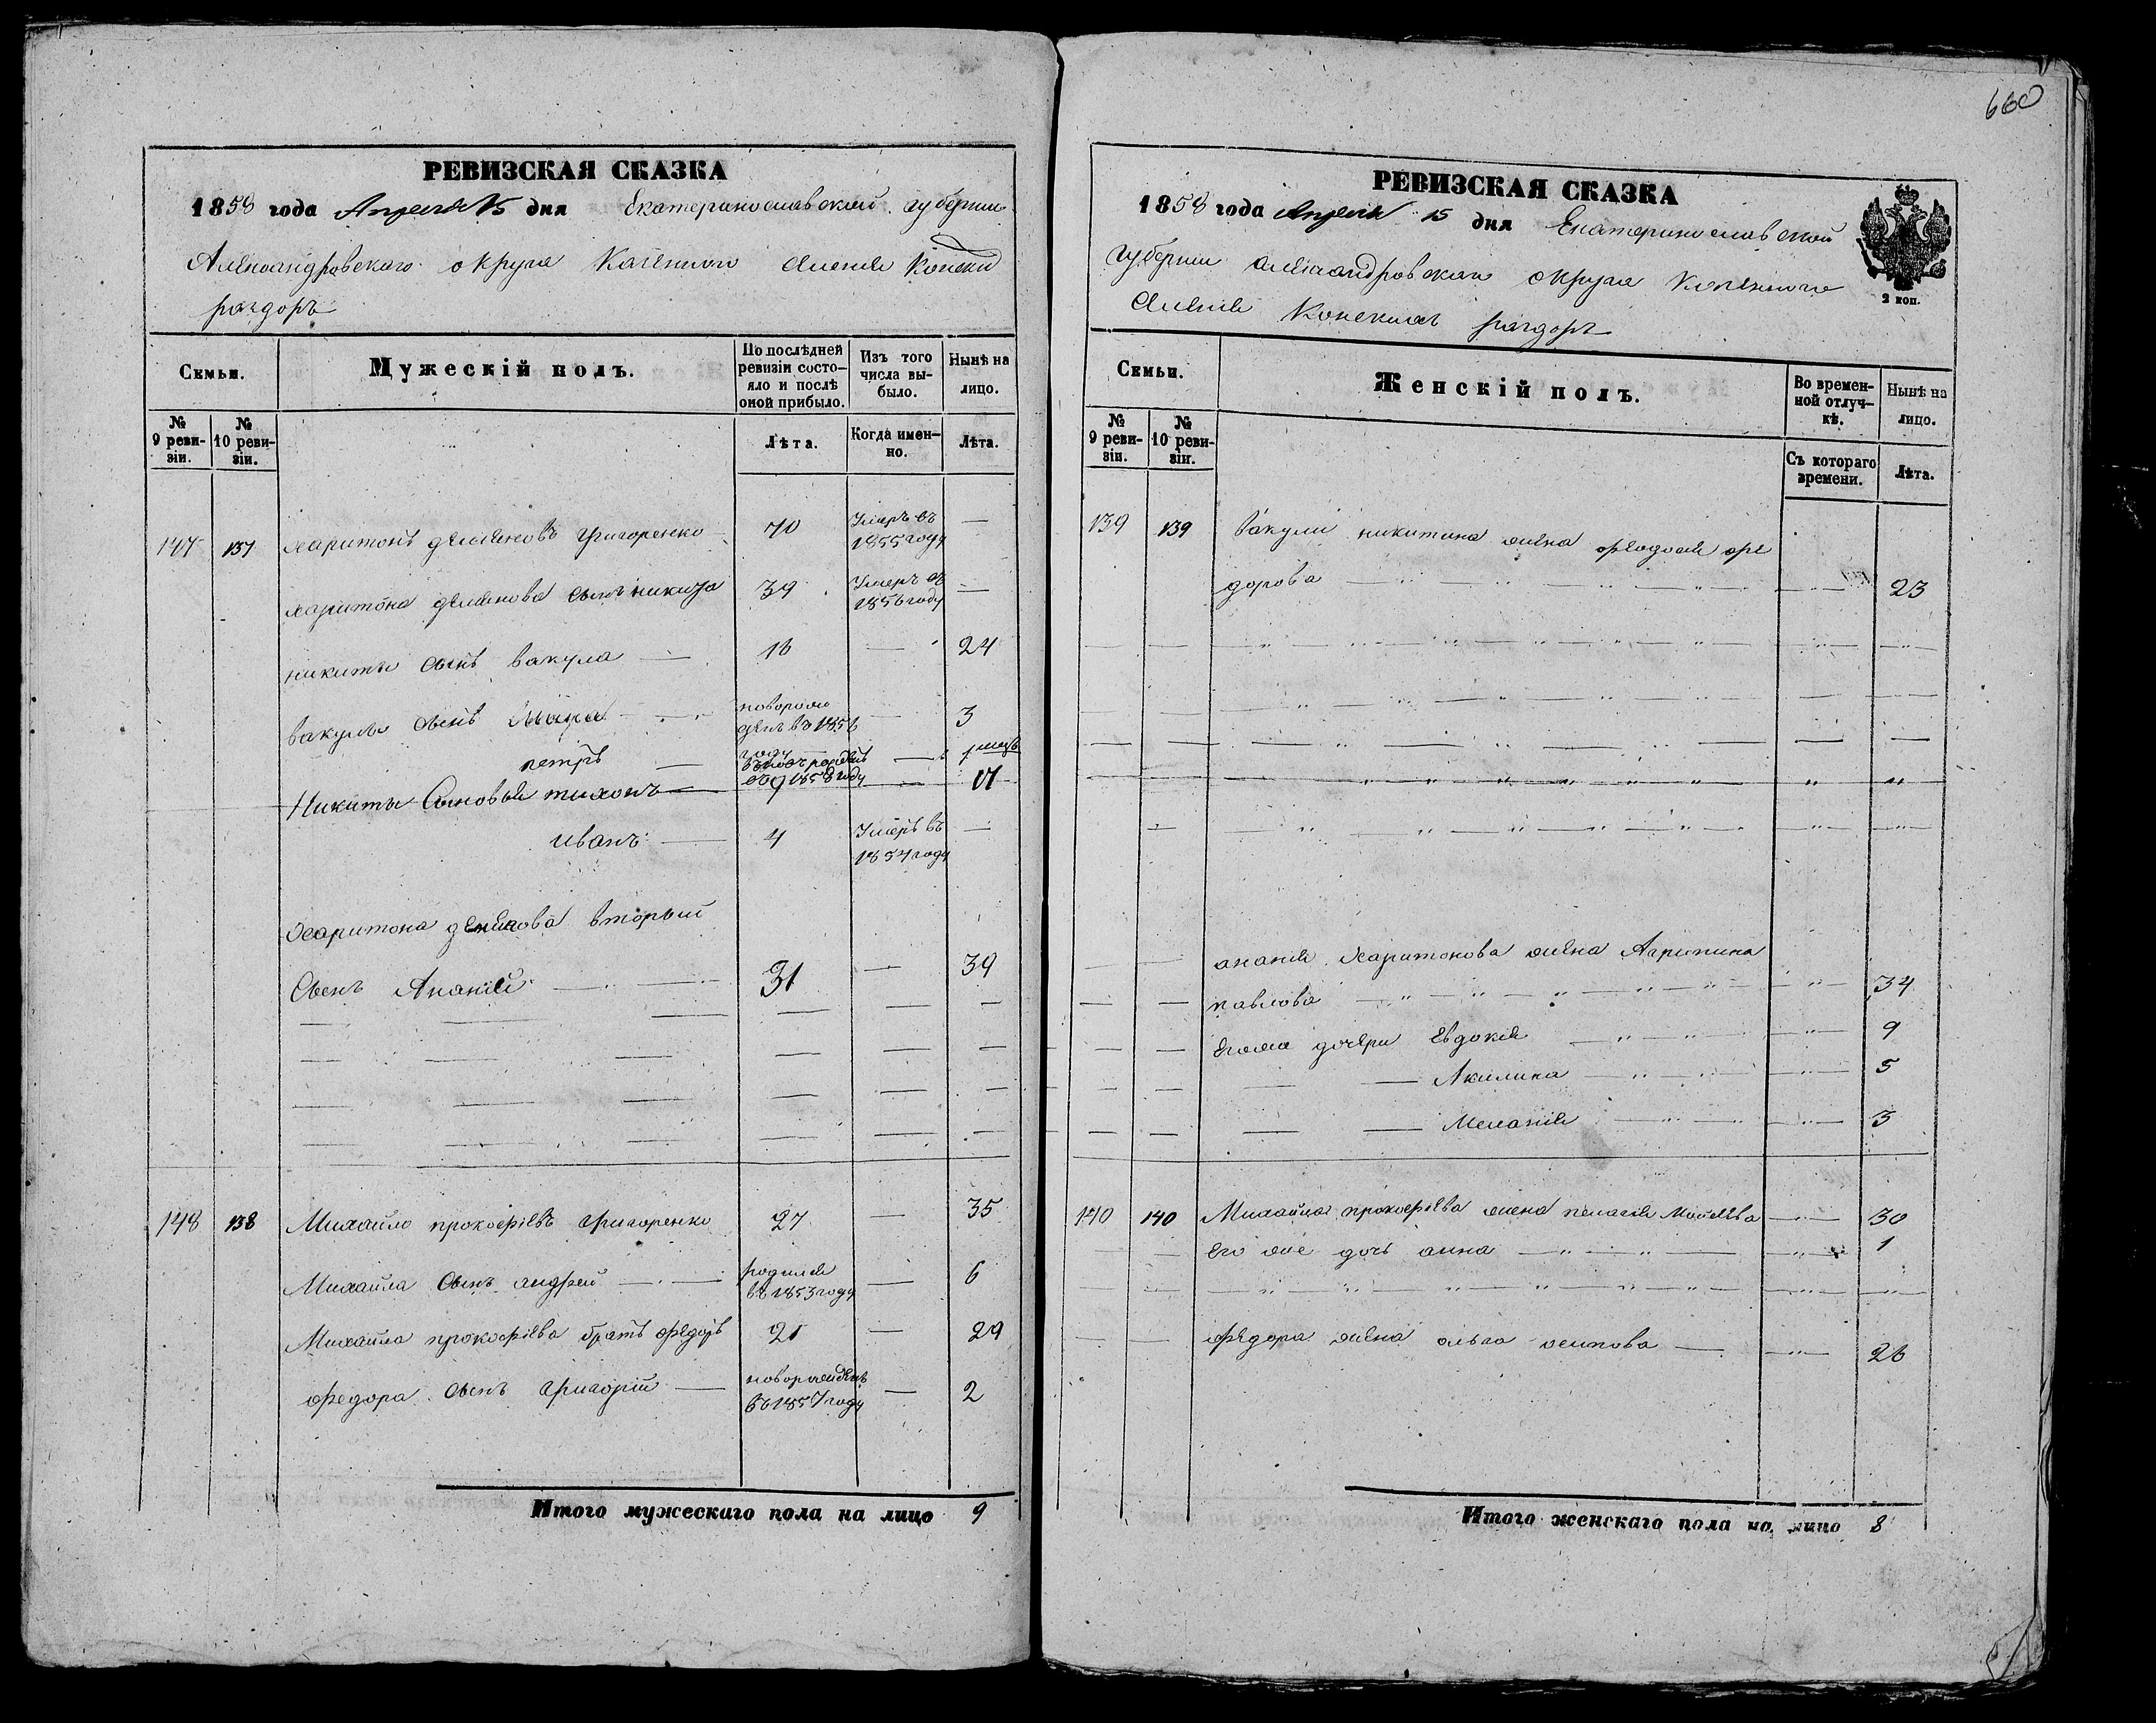 660
РЕВИЗСКАЯ СКАЗКА
1858 года Апреля 15 дня Екатеринославской губернии
Александровского округа Казенного Конски
раздоръ
Семьи.
Мужескій полъ.
По послѣдней ревизіи состо-
яло и послѣ оной прибыло.
Изъ того числа вы-
было.
Нынѣ на лицо.
№ 9 реви-
зіи.
№ 10 реви-
зіи.
Лѣта.
Когда имен-
но.
Лѣта.
147 137 Харитонъ демяновъ григоренко 70 Умеръ въ
1855 году
Харитона демянова сынъ никита 39 Умеръ въ
1856 году
никиты сынъ вакула 16 24
вакулы сынъ новорож
денъ въ 1856 3
году
петръ 1858 году
Никиты Сыновья тихонъ 9 17
иванъ 4 Умеръ въ
1854 году
Харитона демянова вторый
Сынъ Ананій 31 39
148 138 Михайло прокофіевъ григоренко 27 35
Михайла сынъ андрей родился
въ 1853 году 6
Михайла прокофіева братъ федоръ 21 29
федора сынъ григорій новорожденъ
въ 1857 году 2
Итого мужескаго пола на лицо 9
РЕВИЗСКАЯ СКАЗКА
1858 года Апреля 15 дня Екатеринославской
губернии александровскаго округа Казенного
Конскихъ раздоръ
2 коп.
Семьи.
Женскій полъ.
Во времен-
ной отлуч-
кѣ.
Нынѣ на лицо.
№ 9 реви-
зіи.
№ 10 реви-
зіи.
Съ котораго времени.
Лѣта.
139 139 Вакули никитина жена феодосія фе
дорова 23
ананія Харитонова жена Агрипина
павлова 34
Егоже дочери Евдокія 9
Акилина 5
Меланія 3
140 140 Михайла прокофіева жена пелагія 30
Его же дочь анна 1
федора жена ольга осипова 26
Итого женскаго пола на лицо 8